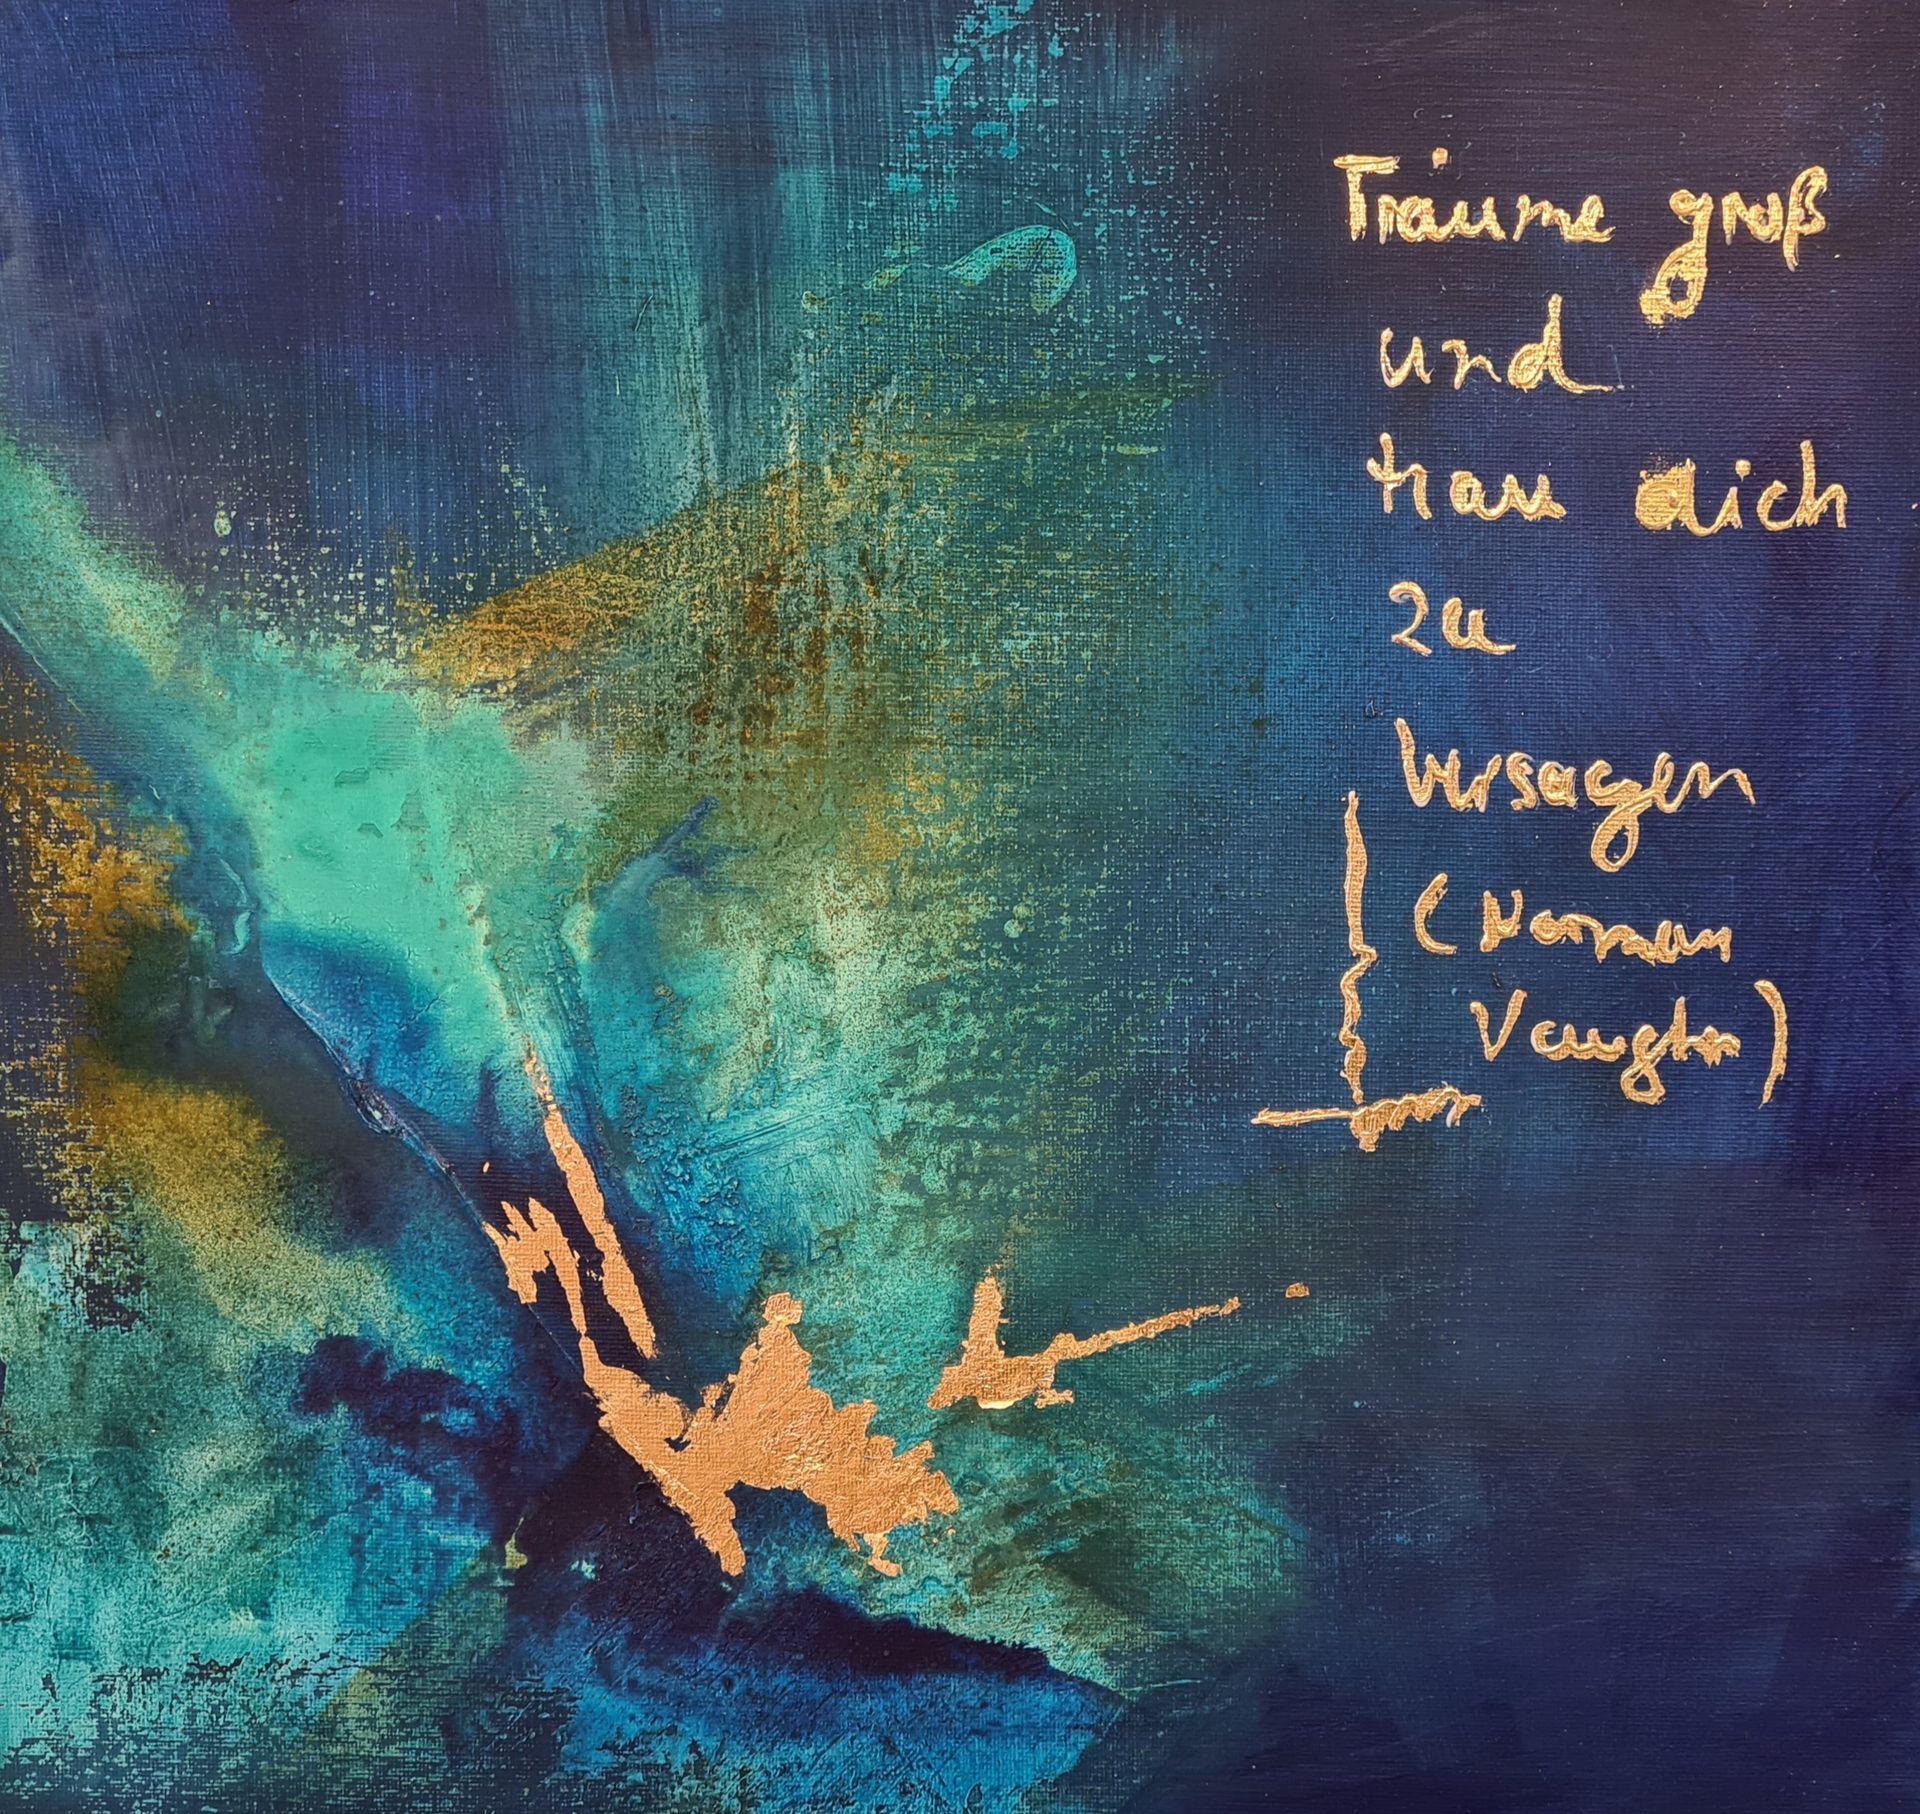 Träume groß
und
trau dich
zu
Versagen
(Norman
Vaughn)